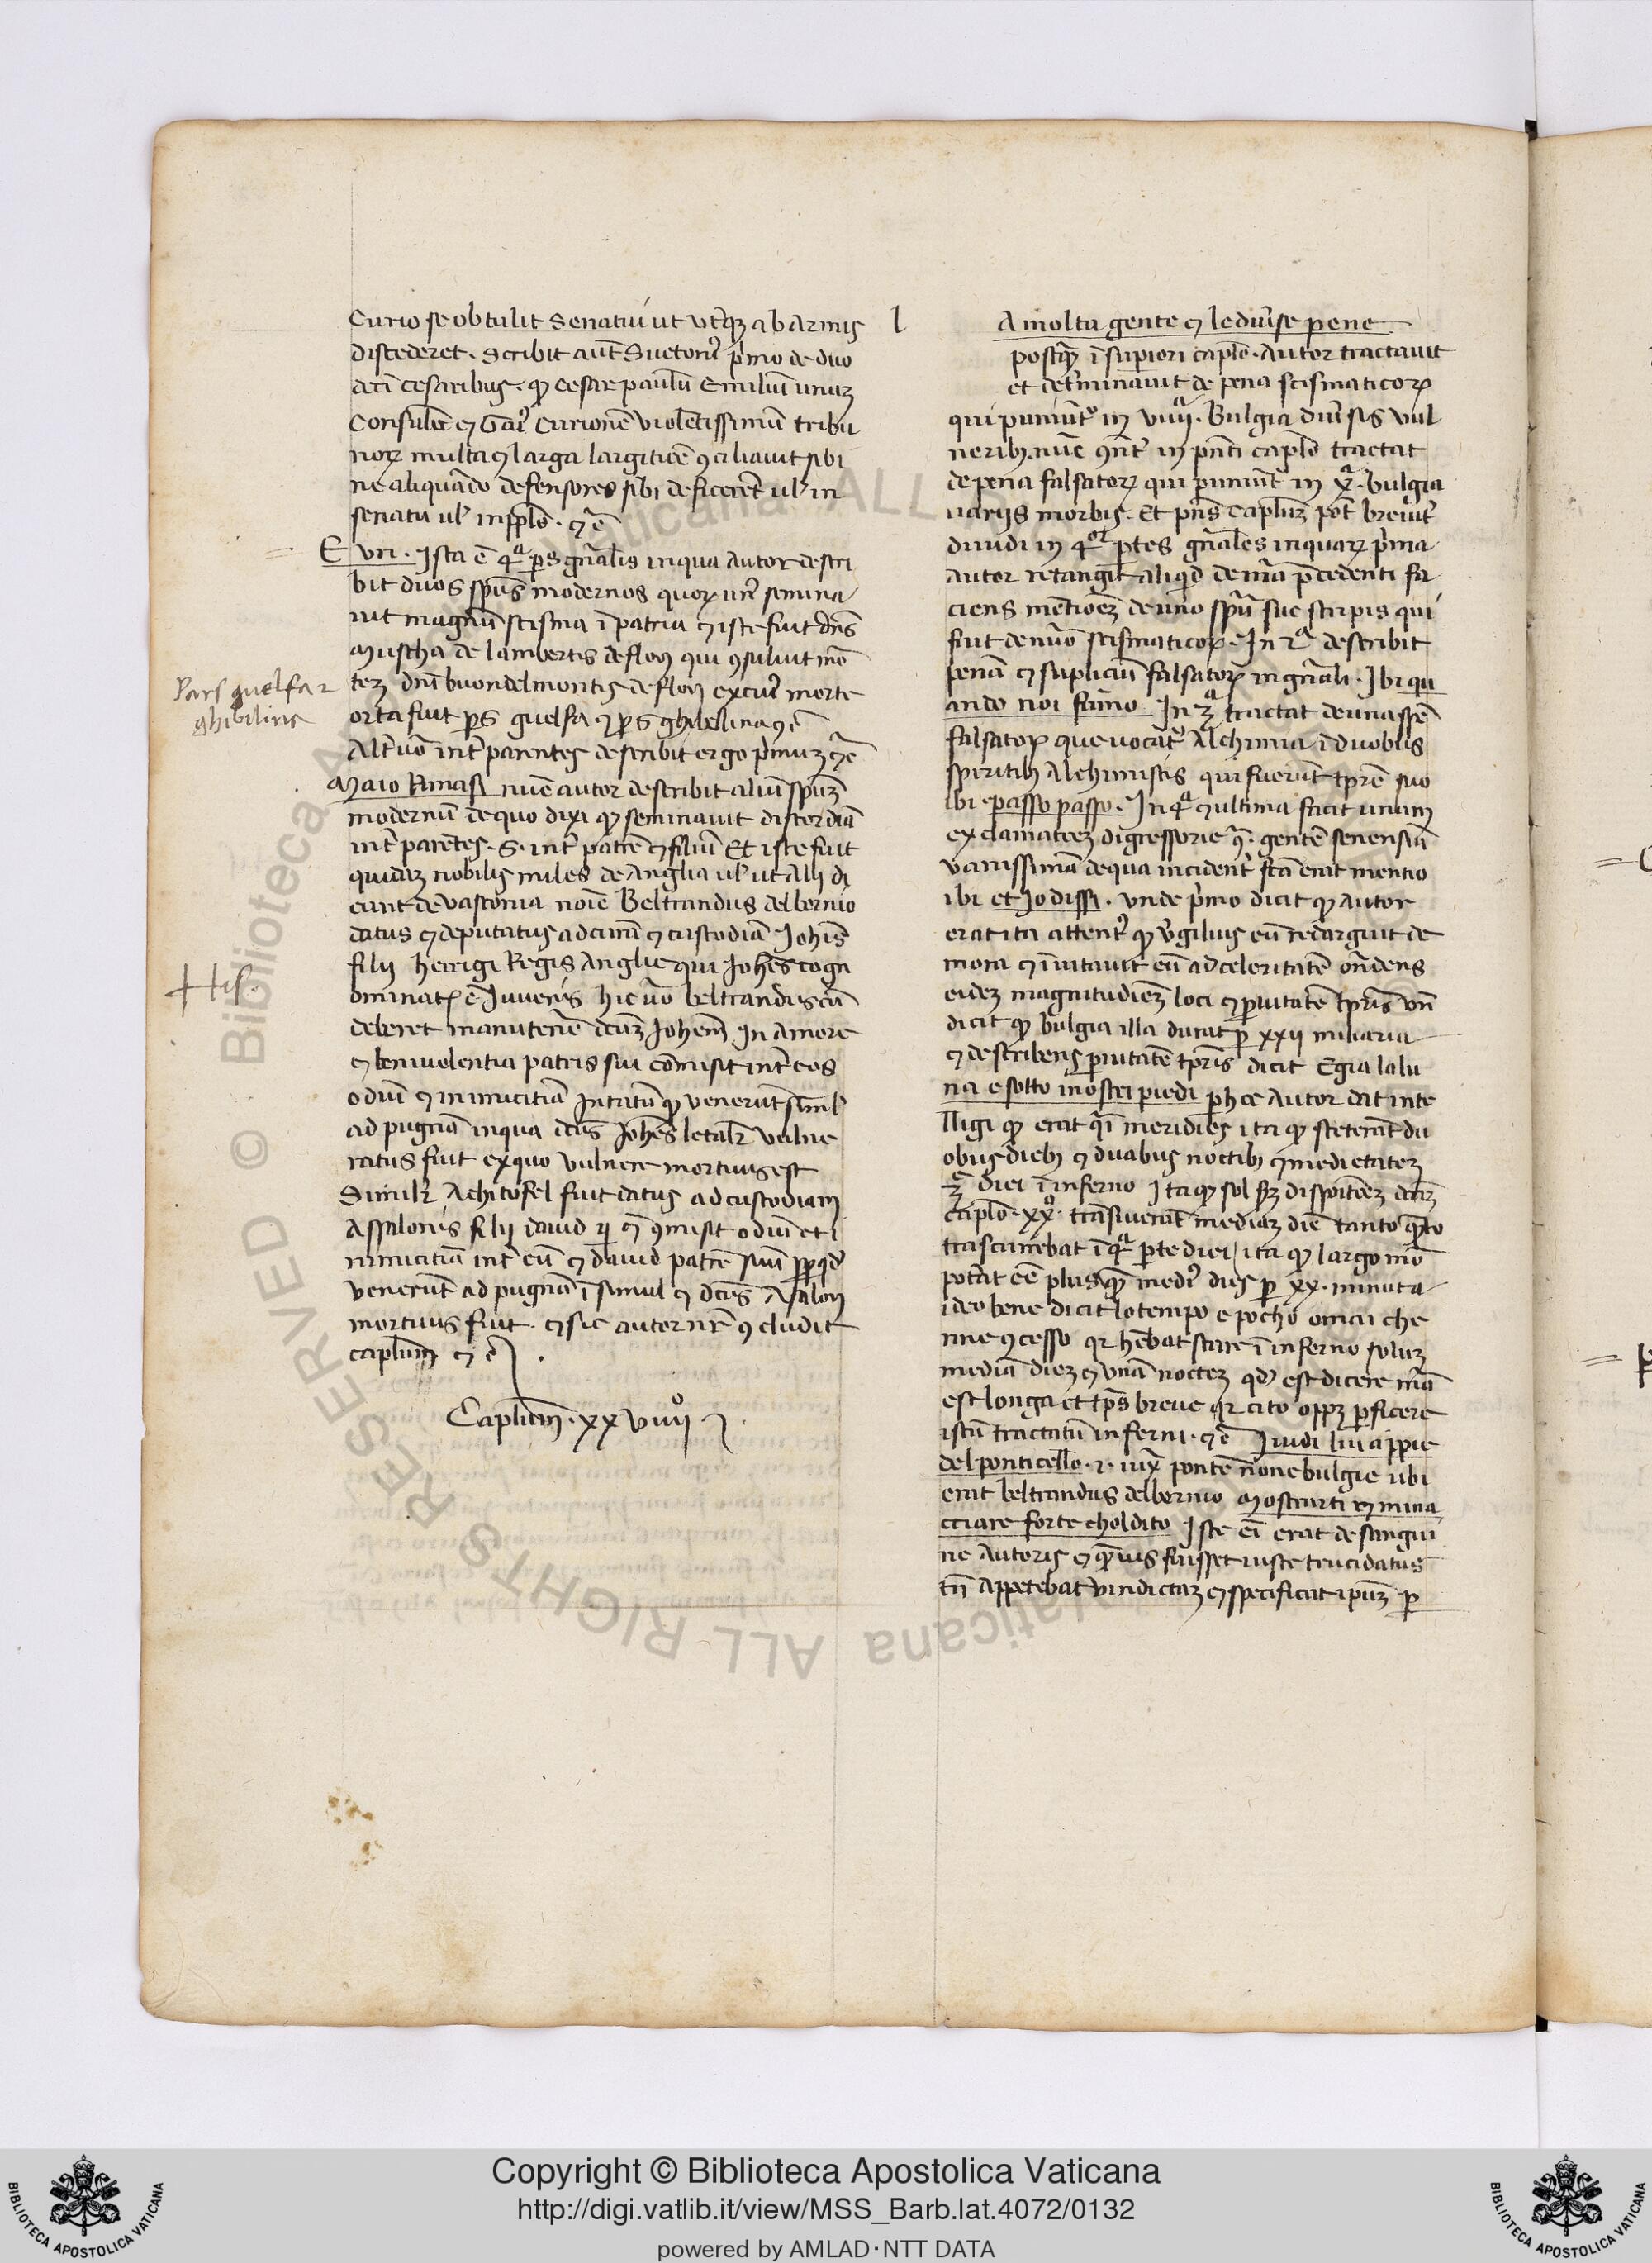 Curio se obtulit Senatui ut utq̃z ab armis
discederet. Scribit aut̃ Suetoni9 p̃mo de duo
deci cesaribus. qȝ Cesar paulũ Emiliũ unuz
Consulẽ et Gai9 Curionẽ violẽtissimũ tribu
noꝝ multa et larga largitiõe ꝯciliavit sibi
ne aliquãdo defensores sibi deficerẽt ul̃ in
senatu ul̃ in pp̃lo. et c̃
E un. Ista ẽ qr̃a ps̃ gñalis in qua autor descri
bit duos sp̃us modernos quoꝝ un9 semina
uit magnũ scisma ĩ patria et iste fuit dñs
Muscha de lambertis de floñ qui ꝯsuluit mo᷑
tez dñi buondelmontis de floñ ex cui9 morte
orta fuit ps̃ guelfa et ps̃ ghibellina et c̃
Alt̃ uõ int̃ parentes describit ergo p̃muz et c̃
Maio rimasi nũc autor describit aliũ sp̃uz
modernũ de quo dixi qȝ seminavit discordiã
int̃ parẽtes. S. int̃ patrẽ et filiũ Et iste fuit
quidaz nobilis miles de Anglia ul̃ ut alij di
cunt de vasconia noĩe Beltrandus del bornio
datus et deputatus ad curã et custodiã Iohis̃
filij henrigi Regis Anglie qui Iohẽs cogn
ominat᷑ ẽ Iuvenis hic uõ beltrandus cũ
deberet manutenẽ dc̃uz Iohem̃ in amore
et benivolentia patris sui cõmisit int̃ eos
odiũ et inimicitiã In tãtũ qȝ venerũt simul
ad pugnã in qua dc̃us Iohẽs letalr̃ vulne
ratus fuit ex quo vulnere mortuus est
Similr̃ Achitofel fuit datus ad custodiam
Assalonis filij david et cõmisit odiũ et i
nimicitiã int̃ eũ et david patrẽ suũ ꝓpt̃ qd̃
venerũt ad pugnã ĩ simul et dc̃us Asalon
mortuus fuit. et sic autor nr̃ ꝯcludit
capl̃um et c̃.
Capl̃um. xxviiij°
Pars guelfa
ghibilina
His.
l A molta gente et le div̾se pene
postq̃z ĩ supiori capl̃o. Autor tractavit
et det̾minavit de pena scismaticoꝝ
qui puniũt᷑ in viiijᵃ. Bulgia div̾sis vul
neribȝ. nũc ꝯñt̾ in pñti capl̃o tractat
de pena falsatoꝝ qui puniũt᷑ in xᵃ. bulgia
varijs morbis. Et pñs capl̃um pot̃ brevit̾
dividi in qr̃ ꝑtes gñales in quaꝝ p̃ma
autor retangit aliqd̃ de mã p̃cedenti fa
ciens mẽtiõez de uno sp̃u sue stirpis qui
fuit de nũo scismaticoꝝ. In 2ᵃ describit
penã et supliciũ falsatoꝝ in gñali. Ibi qu
ando noi fumo In 3ᵃ tractat de una spẽ
falsatoꝝ que vocat᷑ Alchimia ĩ duobus
spiritibȝ Alchimistis qui fuerũt tp̃re suo
ibi. passo passo. In qr̃a et ultima facit unam
exclamatiõez digressorie ꝯ̃. gentẽ senensiũ
vanissimã de qua incidenṭ̾ fc̃a erat mentio
ibi et Io dissi. Unde p̃mo dicit qȝ autor
erat ita attent9 qȝ v̾gilius eũ redarguit de
mora et ĩvitavit eũ ad celeritatẽ oñdens
eidez magnitudiẽz loci et ꝑvitatẽ tp̃ris uñ
dicit qȝ bulgia illa durat ꝑ xxij miliaria
et describens ꝑvitatẽ tp̃ris dicit E gia la lu
na e sotto i nostri piedi ꝑ hec autor dat inte
lligi qȝ erat qĩ meridies ita qȝ steterãt du
obus diebȝ et duabus noctibȝ et medietatez
3ᵉ diei ĩ inferno Ita qȝ sol sz̃ disposiciõez dc̃az
capl̃o. xx°. trãsiverat mediaz diẽ tanto qr̃to
trascurrebat ĩ qr̃a ꝑte diei, ita qȝ largo mõ
poterat eẽ plusq̃z medi9 dies ꝑ xx. minuta
ideo bene dicit lo tempo e pocho omai che
nne ꝯcesso qr̃ hẽbat stare ĩ inferno soluz
mediã diez et unã noctez qd̃ est dicere mã
est longa et tp̃s breve qr̃ cito oppz ꝑficere
istũ tractatũ inferni. et c̃ I vidi lui a ppie
del ponticello. i. iux̃ pontẽ none bulgie ubi
erat beltrandus del bornio Mostrarti et mina
cciare forte chol dito Iste ẽi erat de sangui
ne autoris et q̃mvis fuisset iuste trucidatus
tñ appetebat vindictaz et specificat ip̃uz ꝑ
Copyright © Biblioteca Apostolica Vaticana
http://digi.vatlib.it/view/MSS_Barb.lat.4072/0132
powered by AMLAD·NTT DATA
BIBLIOTECA APOSTOLICA VATICANA
BIBLIOTECA APOSTOLICA VATICANA